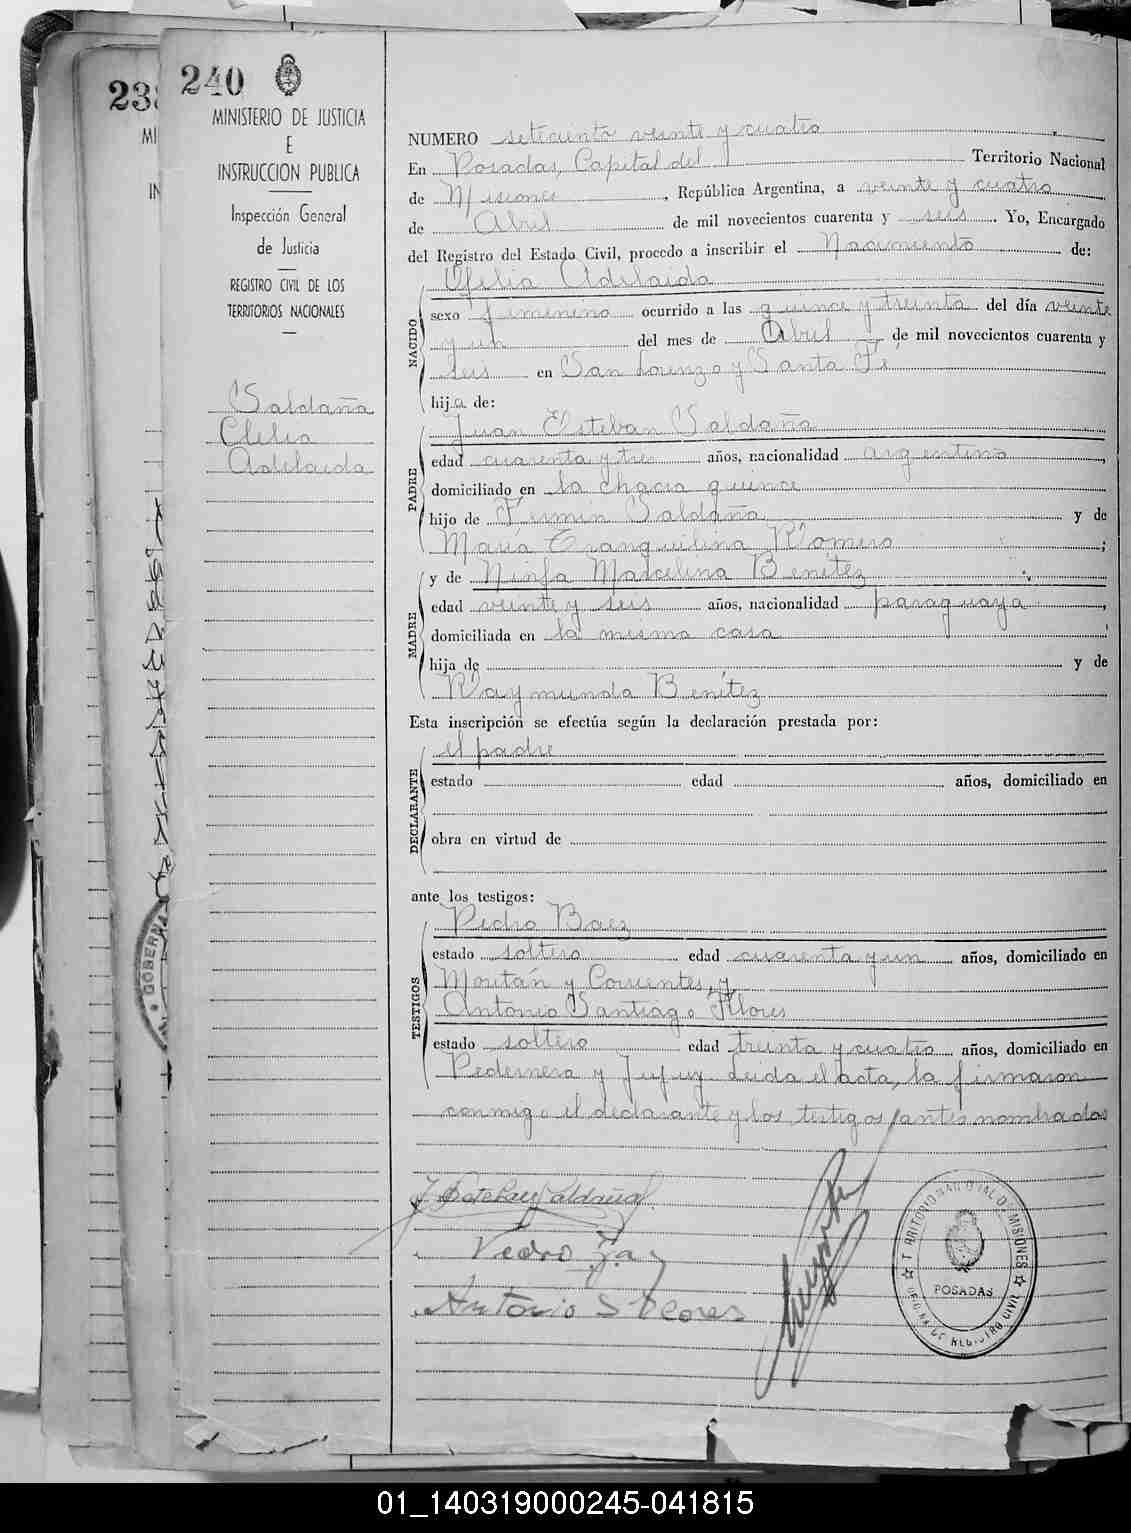 238
240
MINISTERIO DE JUSTICIA
E
INSTRUCCION PUBLICA
Inspección General
de Justicia
REGISTRO CIVIL DE LOS
TERRITORIOS NACIONALES
Saldaña
Clelia
Adelaida
NUMERO setecientos veinte y cuatro
En Posadas, Capital del Territorio Nacional
de Misiones, República Argentina, a veinte y cuatro
de Abril de mil novecientos cuarenta y seis. Yo, Encargado
del Registro del Estado Civil, procedo a inscribir el Nacimiento de:
NACIDO
Clelia Adelaida
sexo femenino ocurrido a las quince y treinta del día veinte
y un del mes de Abril de mil novecientos cuarenta y
seis en San Lorenzo y Santa Fé
hija de:
PADRE
Juan Esteban Saldaña
edad cuarenta y tres años, nacionalidad argentino,
domiciliado en la chacra quince
hijo de Fermin Saldaña y de
María Tranquilina Romero;
MADRE
y de Ninfa Marcelina Benítez
edad veinte y seis años, nacionalidad paraguaya,
domiciliada en la misma casa
hija de y de
Raymunda Benítez
Esta inscripción se efectúa según la declaración prestada por:
DECLARANTE
el padre
estado edad años, domiciliado en
obra en virtud de
ante los testigos:
TESTIGOS
Pedro Baez
estado soltero edad cuarenta y un años, domiciliado en
y Corrientes, y
Antonio Santiago Flores
estado soltero edad treinta y cuatro años, domiciliado en
Pedernera y Jujuy. Leida el acta, la firmaron
conmigo el declarante y los testigos antes nombrados
J Esteban Saldaña
Pedro
Antonio S Flores
TERRITORIO NACIONAL DE MISIONES
POSADAS
OFICINA DE REGISTRO CIVIL
GOBERNA
01_140319000245-041815